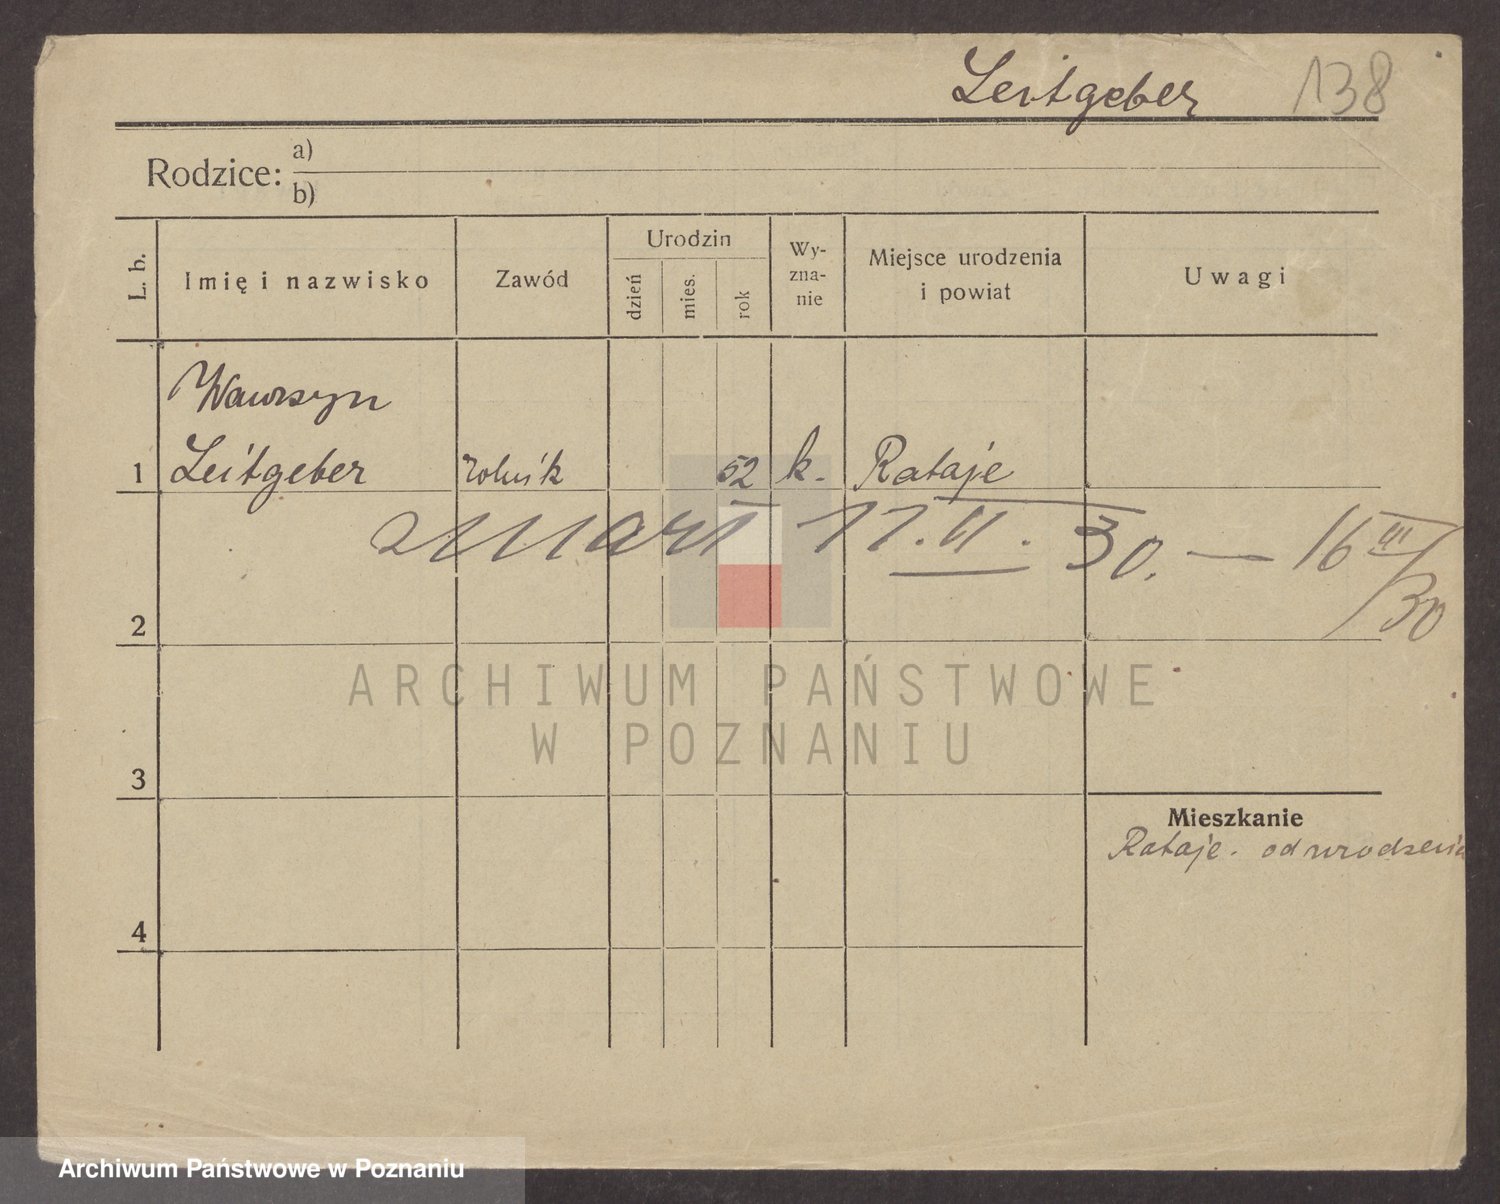 Leitgeber 138
Rodzice:
a)
b)
L. b.
Imię i nazwisko
Zawód
Urodzin
dzień
mies.
rok
Wy-
zna-
nie
Miejsce urodzenia
i powiat
Uwagi
Wawrzyn
1 Leitgeber rolnik 52 k. Rataje
zmarł 11. VI. 30. — 16 III/30
2
ARCHIWUM PAŃSTWOWE
W POZNANIU
3
Mieszkanie
Rataje. od urodzenia
4
Archiwum Państwowe w Poznaniu